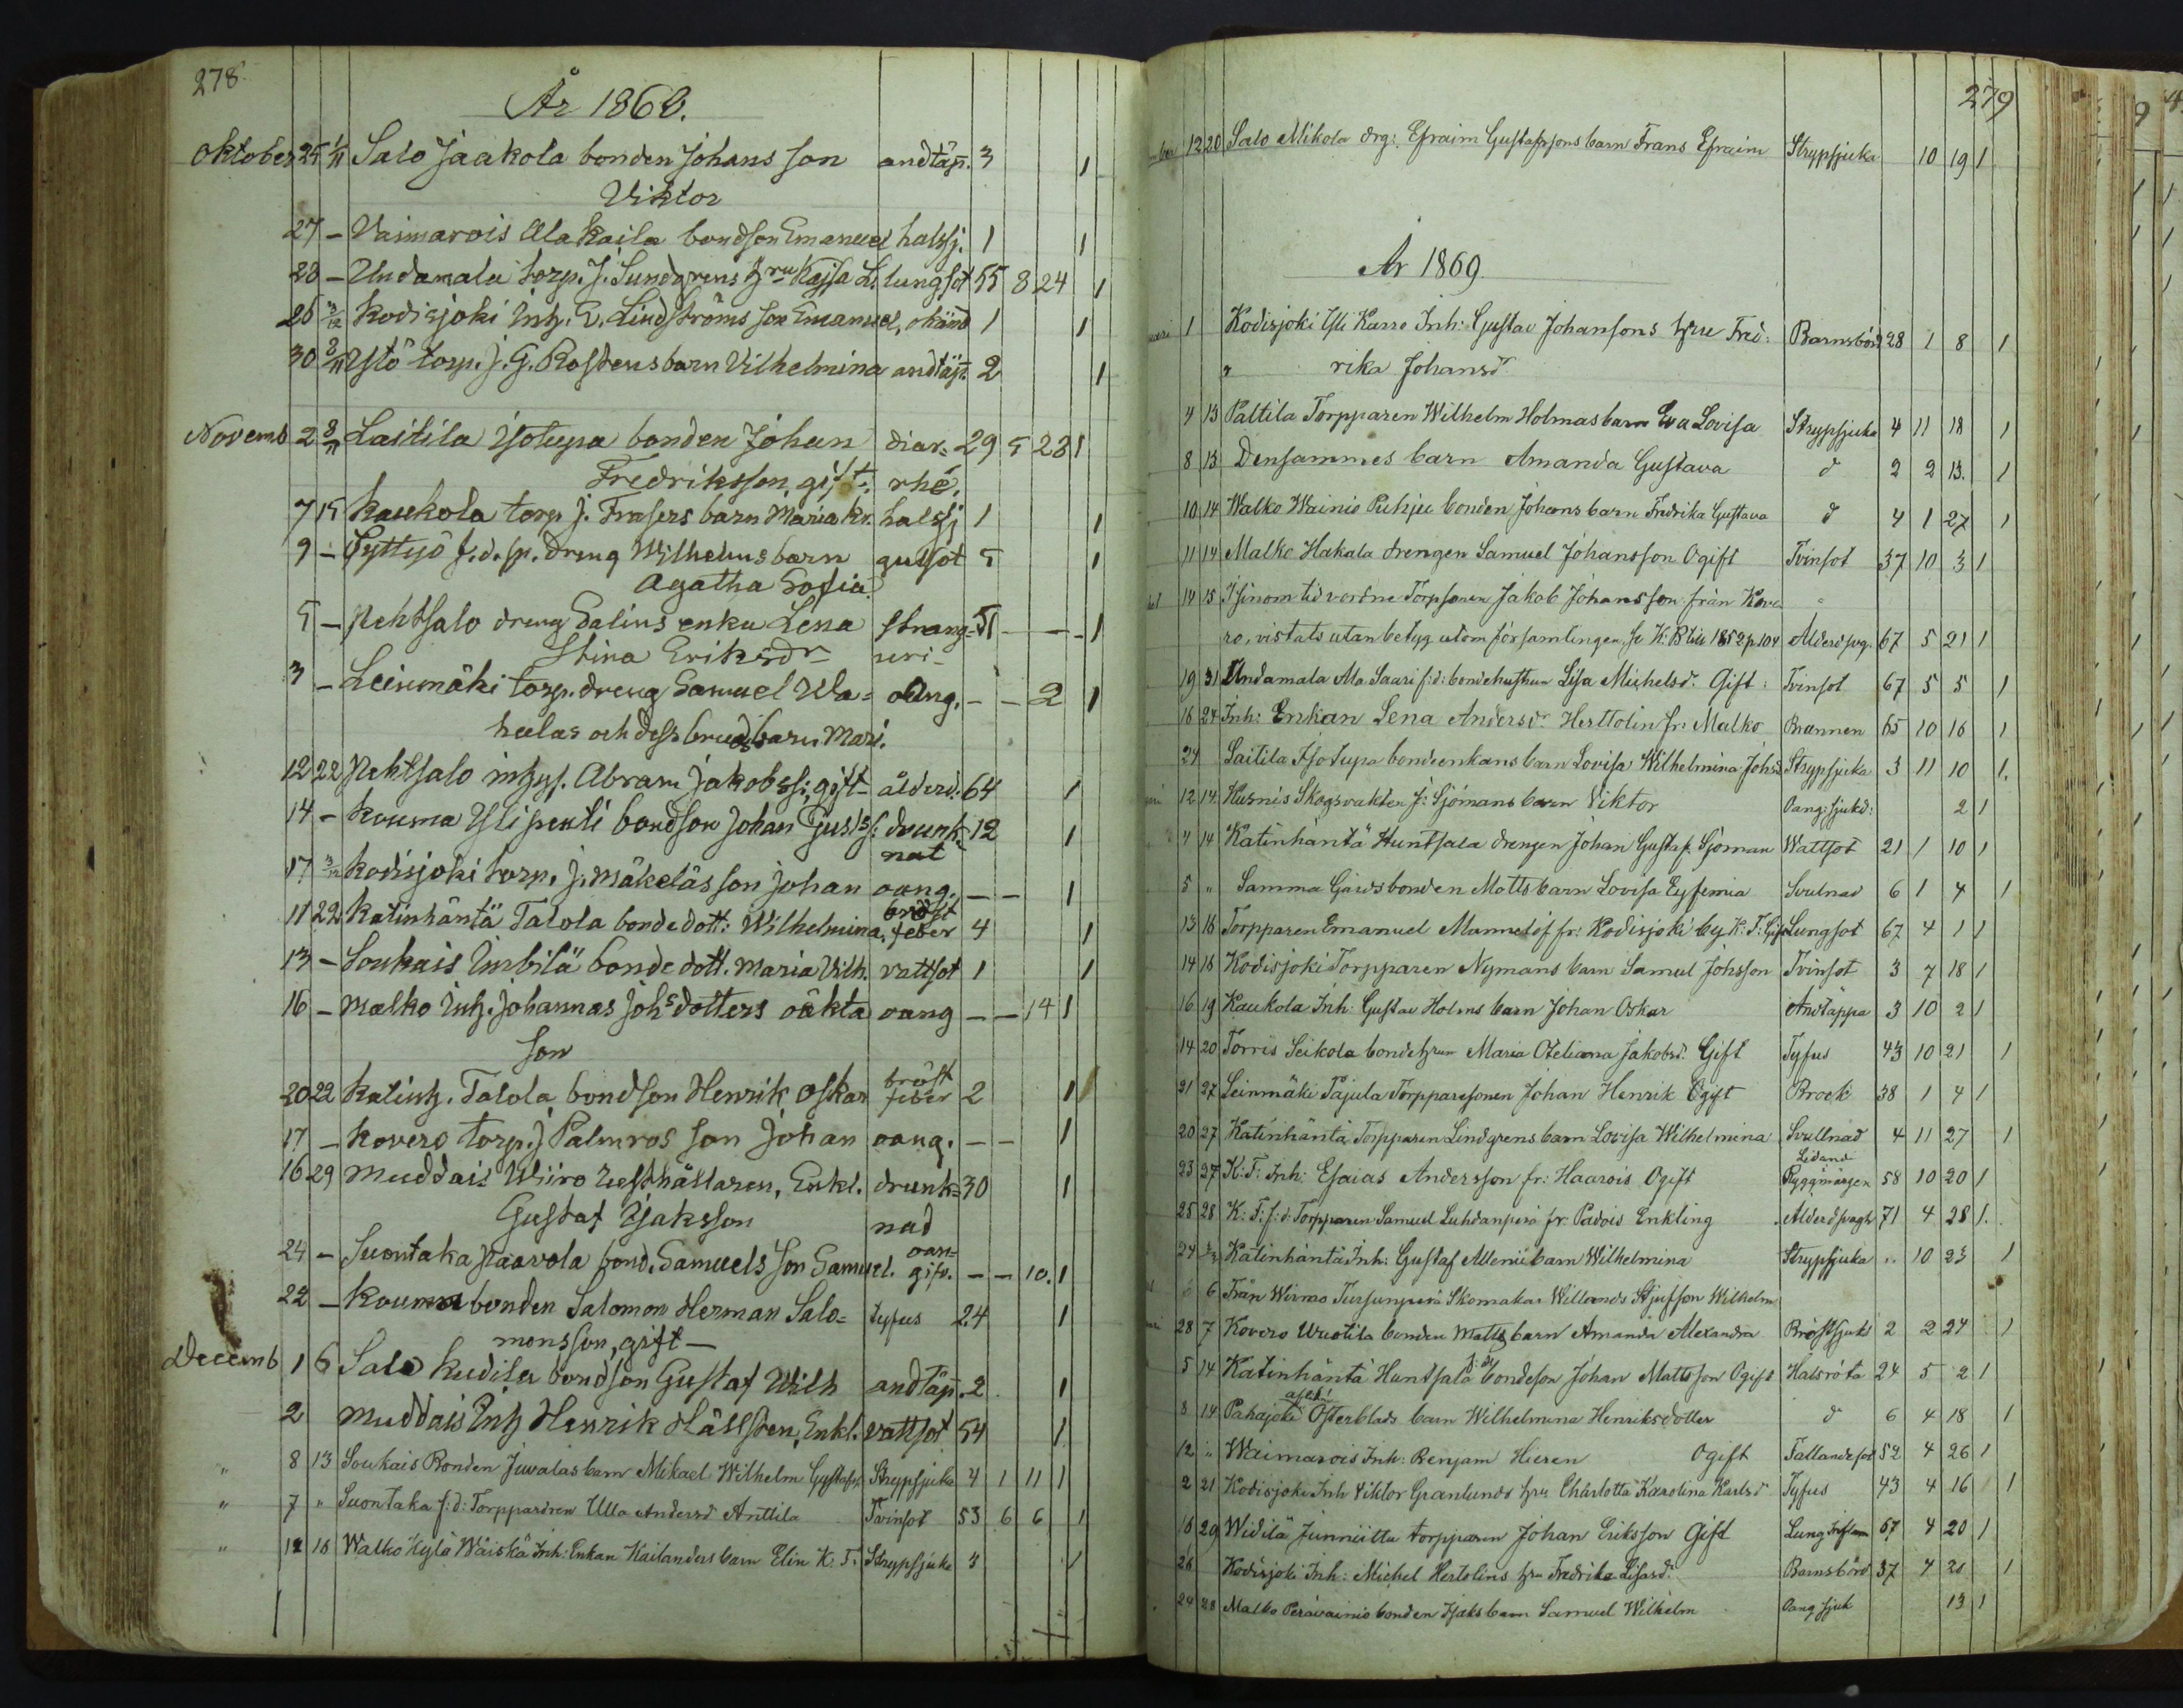 278.
År 1868.
Oktober 25 1/11 Salo Jaakola bonden Johans son andtäp. 3 1
Viktor
27 – Vaimarois Alakaila bondson Emanuel halssj. 1 1
28 – Undamala torp. J. Sundgrens hru Kajsa L. lungsot 55 8 24 1
26 3/12 Kodisjoki Inh. E. Lindströms son Emanuel, okänd 1 1
30 8/11 Ystö torp. J. G. Rostens barn Vilhelmina andtäp. 2 1
Novemb 2 8/11 Laitila Isotupa bonden Johan diar= 29 5 23 1
Fredriksson, gift. rhé.
7 15 Kaukola torp J. Frasers barn Maria Kr. halssj 1 1
9 – Syttyö f.d. sp. dreng Wilhelms barn gulsot 5 1
Agatha Sofia
5 – Pehtsalo dreng Salins enka Lena strang= 51 – – 1
Stina Eriksdr uri–
3 – Leinmäki torp. dreng Samuel Wa= oang. – – 2 1
helas och dess bruds barn Mari.
12 22 Pehtsalo inhys. Abram Jakobss: gift– ålderd: 64 1
14 – Kouma Ylipenti bondson Johan Gusts: drunk= 12 1
nat
17 3/12 Kodisjoki torp. J. Mäkeläs son Johan oang. – – 1
11 22 Katinhäntä Talola bondedott: Wilhelmina, bröst feber 4 1
13 – Soukais Imbilä bondedott. Maria Vilh. vattsot 1 1
16 – Malko Inh. Johannas Johsdotters oäkta oang – – 14 1
son
20 22 Katinh. Talola bondson Henrik Oskar bröst feber 2 1
17 – Kovero torp. J Palmros son Johan oang. – – 1
16 29 Muddais Wiiro Testhållaren, Enkl. drunk= 30 1
Gustaf Isaksson nad
24 – Suontaka Paavola bond. Samuels son Samuel. oan= gifv. – – 10. 1
22 – Kouma bonden Salomon Herman Salo= tyfus 24 1
monsson, gift –
Decemb 1 6 Salo Kudila bondson Gustaf Wilh andtäp. 2 1
2 Muddais Inh Henrik Hällsten, Enkl. vattsot 54 1
" 8 13 Soukais Bonden Juvalas barn Mikael Wilhelm Gustafs Strypsjuka 4 1 11 1
" 7 " Suontaka f:d: Torppardren Ulla Andersd Anttila Tvinsot 53 6 6 1
" 12 16 Walko Kylä Wäiskä Inh: Enkan Kailanders barn Elin K. F. Strypsjuka 3 1
279
12 20 Salo Mikola drg: Efraim Gustafssons barn Frans Efraim Strypsjuka 10 19 1
År 1869.
1 Kodisjoki Yli Karro Inh: Gustav Johansons hru Fred: Barnsbörd 28 1 8 1
rika Johansd.
4 13 Paltila Torpparen Wilhelm Holmas barn Eva Lovisa Strypsjuka 4 11 18 1
8 13 Densammes barn Amanda Gustava d 2 2 13. 1
10 14 Walko Wainio Puhju bonden Johans barn Fredrika Gustava d 4 1 27 1
11 14 Malko Hakala drengen Samuel Johansson Ogift Tvinsot 37 10 3 1
14 15 I sinom tid vordne Torpsonen Jakob Johansson från Kove
ro, vistats utan betyg utom församlingen, se K: B till 1852 p 104 Alderdsvg. 67 5 21 1
19 31 Undamala Ala Saari f:d: bondehustrun Lisa Michelsd. Gift: Tvinsot 67 5 5 1
16 24 Inh: Enkan Lena Andersdr Herttolin fr: Malko Brännen 65 10 16 1
24 Laitila Isotupa bondeenkans barn Lovisa Wilhelmina Johsd Strypsjuka 3 11 10 1.
12 14 Kusnis Skogsvakten J: Sjömans barn Viktor Oang: sjukd: 2 1
4 14 Katinhäntä Huntsala drengen Johan Gustaf Sjöman Wattsot 21 1 10 1
5 " Samma Gårdsbonden Matts barn Lovisa Eyfemia Svulnad 6 1 4 1
13 16 Torpparen Emanuel Mannelöf fr: Kodisjoki by K: F: Gift Lungsot 67 4 1 1
14 16 Kodisjoki Torpparen Nymans barn Samuel Johsson Tvinsot 3 7 18 1
16 19 Kaukola Inh: Gustav Holms barn Johan Oskar Andtäppa 3 10 2 1
14 20 Torris Seikola bondehrun Maria Oteliana Jakobsd. Gift Tyfus 43 10 21 1
21 27 Leinmäki Pajula Torpparesonen Johan Henrik Ogift Brock 38 1 4 1
20 27 Katinhäntä Torpparen Lindgrens barn Lovisa Wilhelmina Svullnad 4 11 27 1
23 27 K: F: Inh: Esaias Andersson fr: Haarois Ogift Lidand Ryggmärgen 58 10 20 1
25 28 K: F: f: d: Torpparen Samuel Luhdanperä fr: Padois Enkling Alderdsvagh 71 4 28 1.
24 Katinhäntä Inh: Gustaf Allenii barn Wilhelmina Strypsjuka .. 10 23 1
6 6 Från Wirmo Tursunperä Skomakar Willands Stjufson Wilhelm
28 7 Kovero Uuotila bonden Matts barn Amanda Alexandra Bröstsjuka 2 2 24 1
5 14 Katinhäntä Huntsala f: d: bondeson Johan Mattsson Ogift Halsröta 24 5 2 1
8 14 Pahajoki Österblads barn Wilhelmina Henriksdotter d 6 4 18 1
12 " Waimarois Inh: Benjam Hieren Ogift Fallandesot 52 4 26 1
2 21 Kodisjoki Inh Viktor Granlunds hru Charlotta Karolina Karlsd Tyfus 43 4 16 1
16 29 Widilä Junniittu torpparen Johan Eriksson Gift Lung Inflam 67 4 20 1
26 Kodisjoki Inh: Michel Hertolins hru Fredrika Lisasd. Barnsbörd 37 4 20 1
24 28 Malko Perävainio bonden Isaks barn Samuel Wilhelm Oang sjuk 13 1